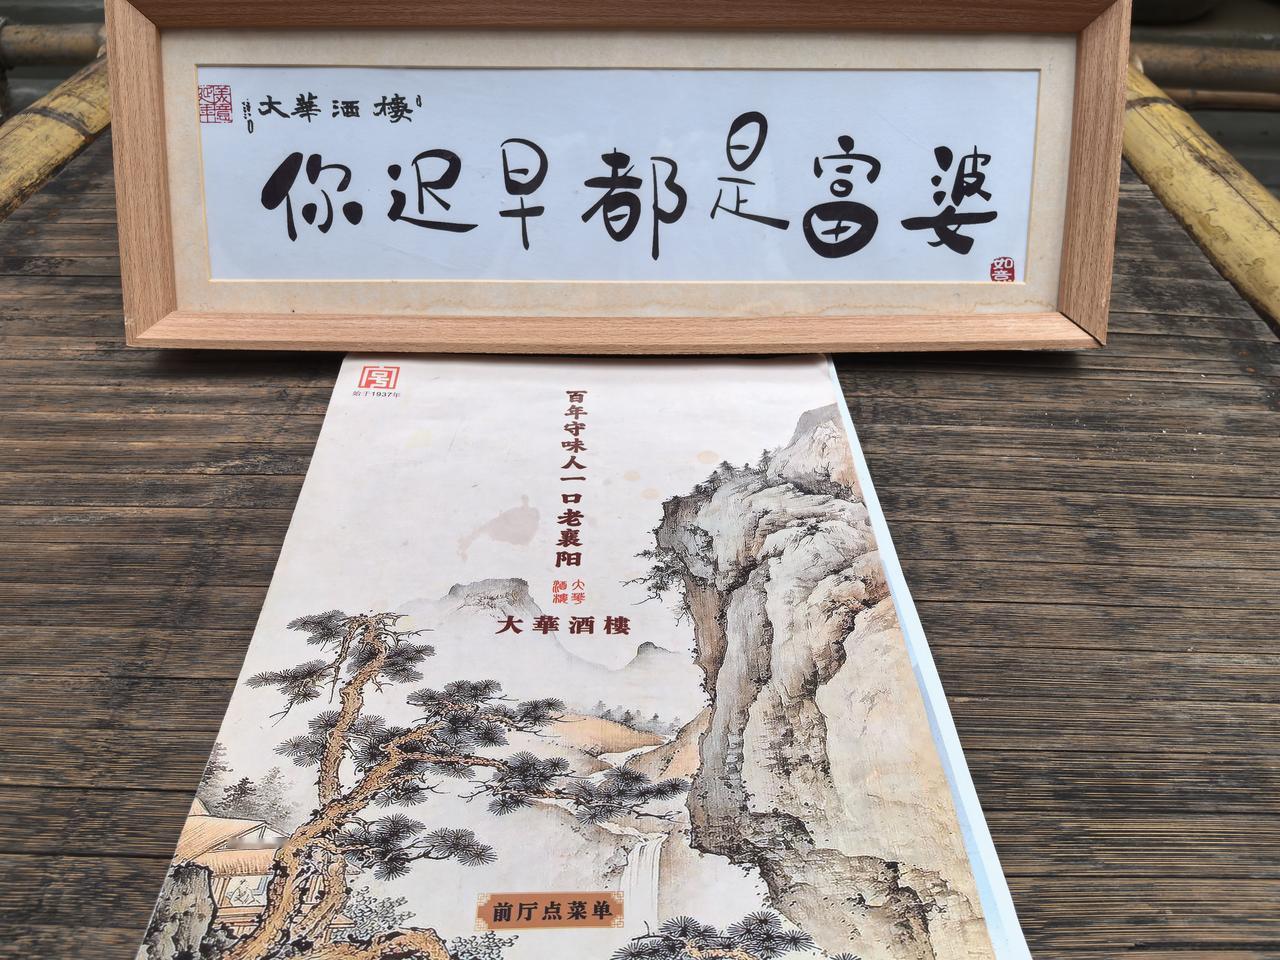 大華酒樓
你迟早都是富婆
如意
始于1937年
百年守味人一口老襄阳
大華酒樓
大華酒樓
前厅点菜单